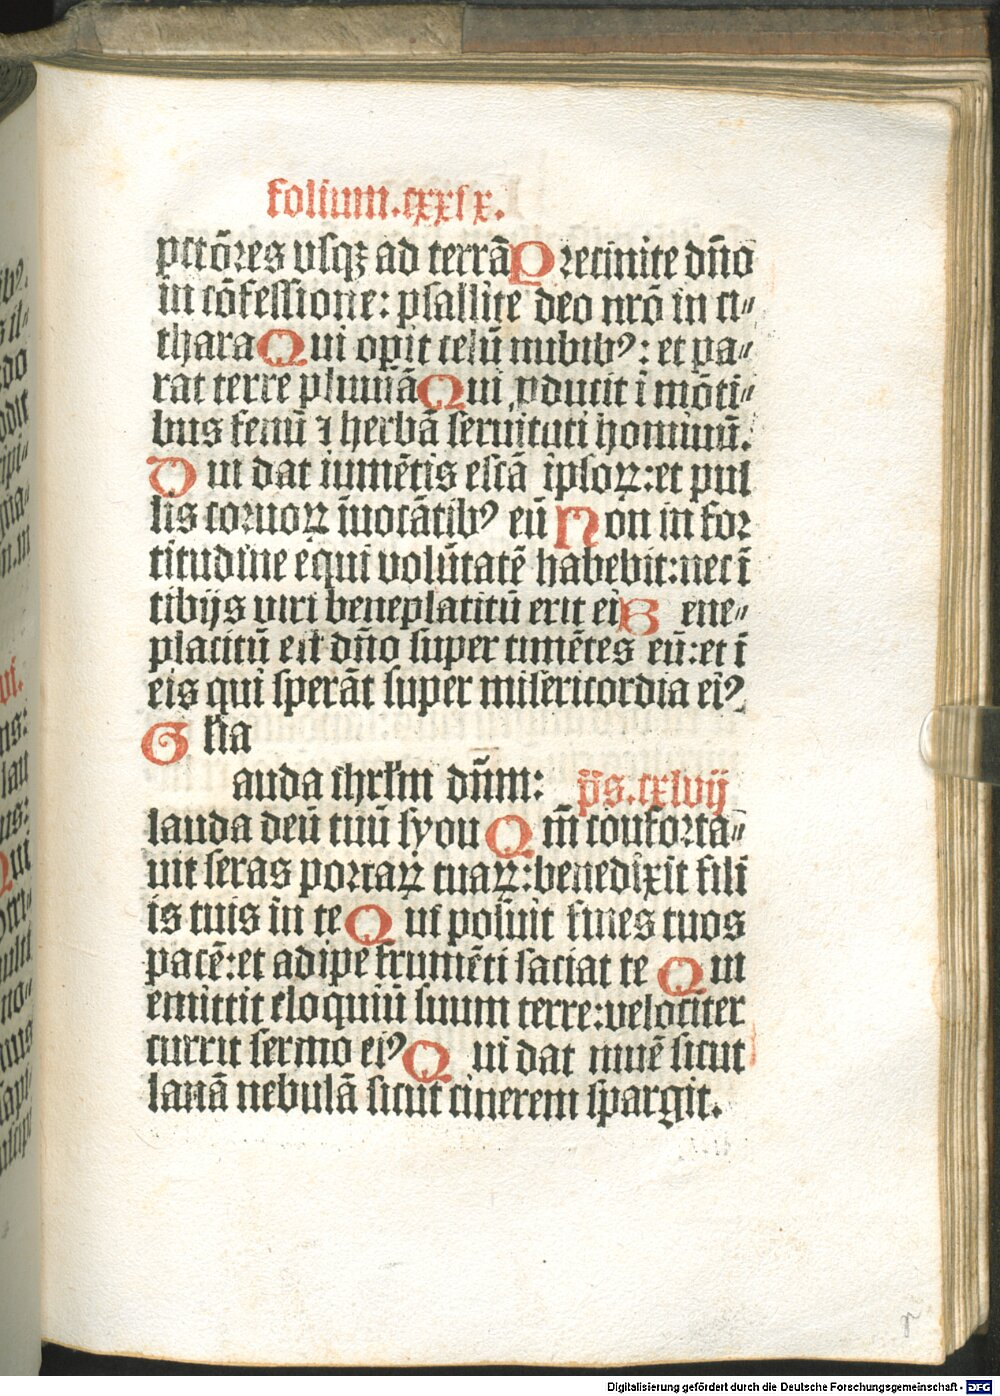 folium.cxxix.
pctōres vsqꝫ ad terrā Precinite dño
in cōfessione: psallite deo nrō in ci⸗
thara Qui opit celū nubibꝰ: et pa⸗
rat terre pluuiā Qui ꝓducit ī mōti⸗
bus fenū ⁊ herbā seruituti hominū.
Qui dat iumētis escā ipsoꝝ: et pul
lis coruoꝝ īuocātibꝰ eū Non in for
titudine equi volūtatē habebit: nec ī
tibijs viri beneplacitū erit ei Bene⸗
placitū est dño super timētes eū: et ī
eis qui sperāt super misericordia eiꝰ
Glia
auda ihrlm dñm: p̄s. cxlvij
lauda deū tuū syon Qm̄ conforta⸗
uit seras portaꝝ tuaꝝ: benedixit fili
is tuis in te Qui posuit fines tuos
pacē: et adipe frumēti saciat te Qui
emittit eloquiū suum terre: velociter
currit sermo eiꝰ Qui dat niuē sicut
lanā nebulā sicut cinerem spargit.
Digitalisierung gefördert durch die Deutsche Forschungsgemeinschaft - DFG